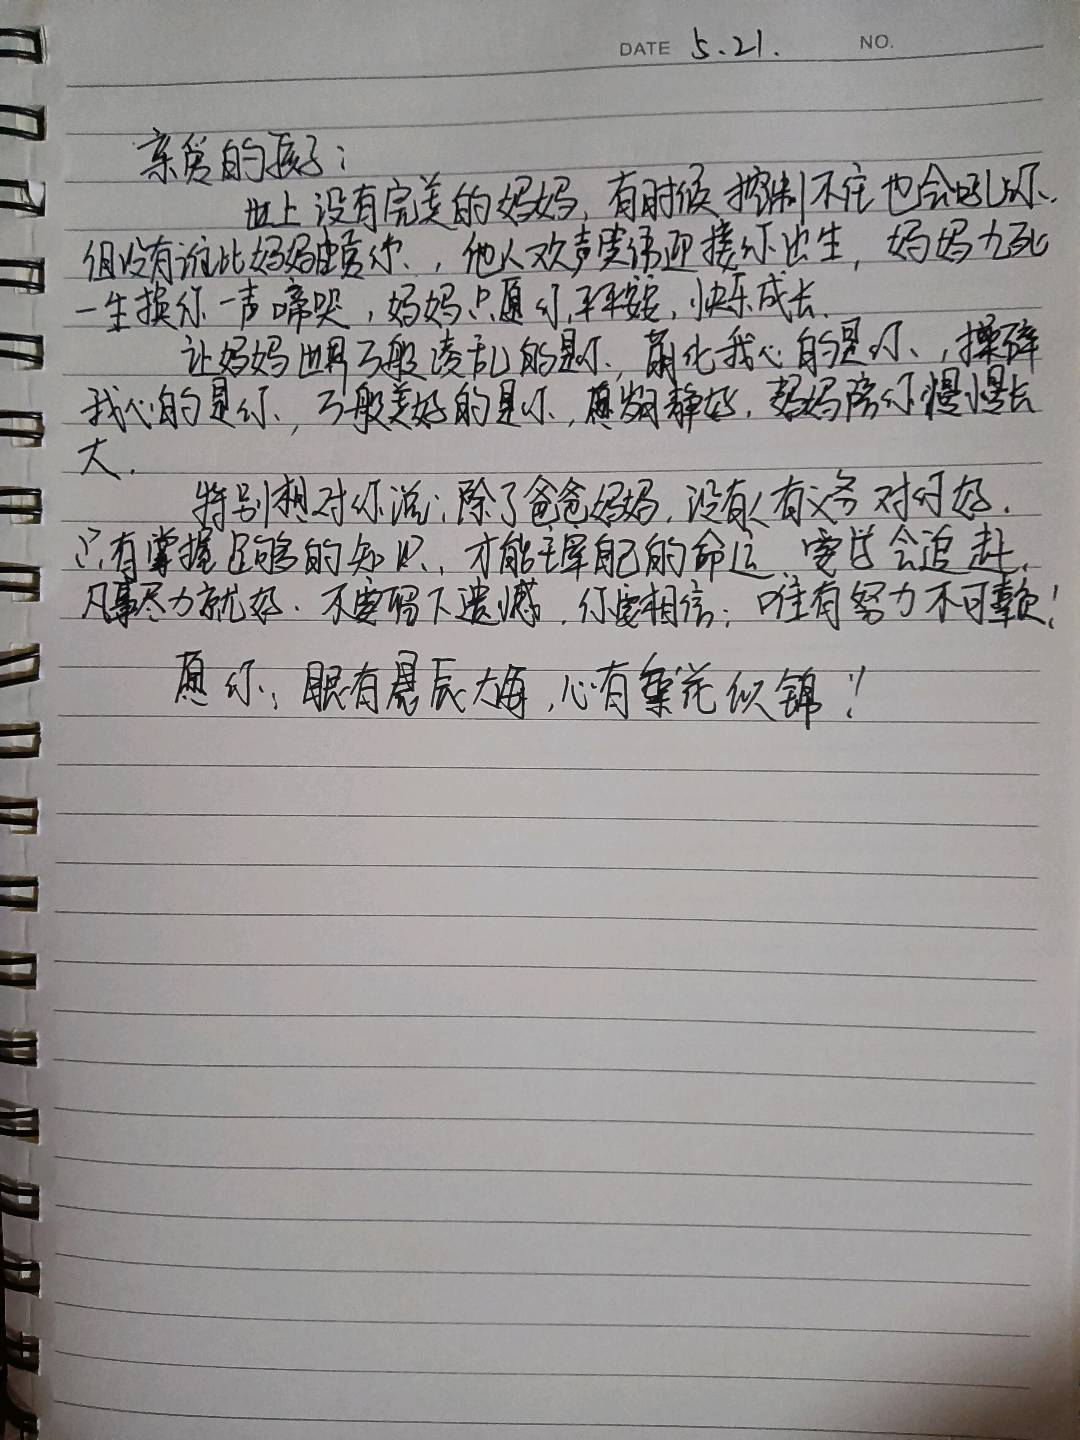 DATE 5.21. NO.
亲爱的孩子：
世上没有完美的妈妈，有时候控制不住也会吼你.
但没有谁比妈妈更爱你，他人欢声笑语迎接你出生，妈妈九死
一生换你一声啼哭，妈妈只愿你平平安安，快乐成长.
让妈妈世界万般凌乱的是你，萌化我心的是你，操碎
我心的是你，万般美好的是你，愿岁月静好，妈妈陪你慢慢长
大.
特别想对你说：除了爸爸妈妈，没有人有义务对你好.
只有掌握足够的知识，才能主宰自己的命运，要学会追赶.
凡事尽力就好.不要留下遗憾，你要相信：唯有努力不可辜负！
愿你：眼有星辰大海，心有繁花似锦！